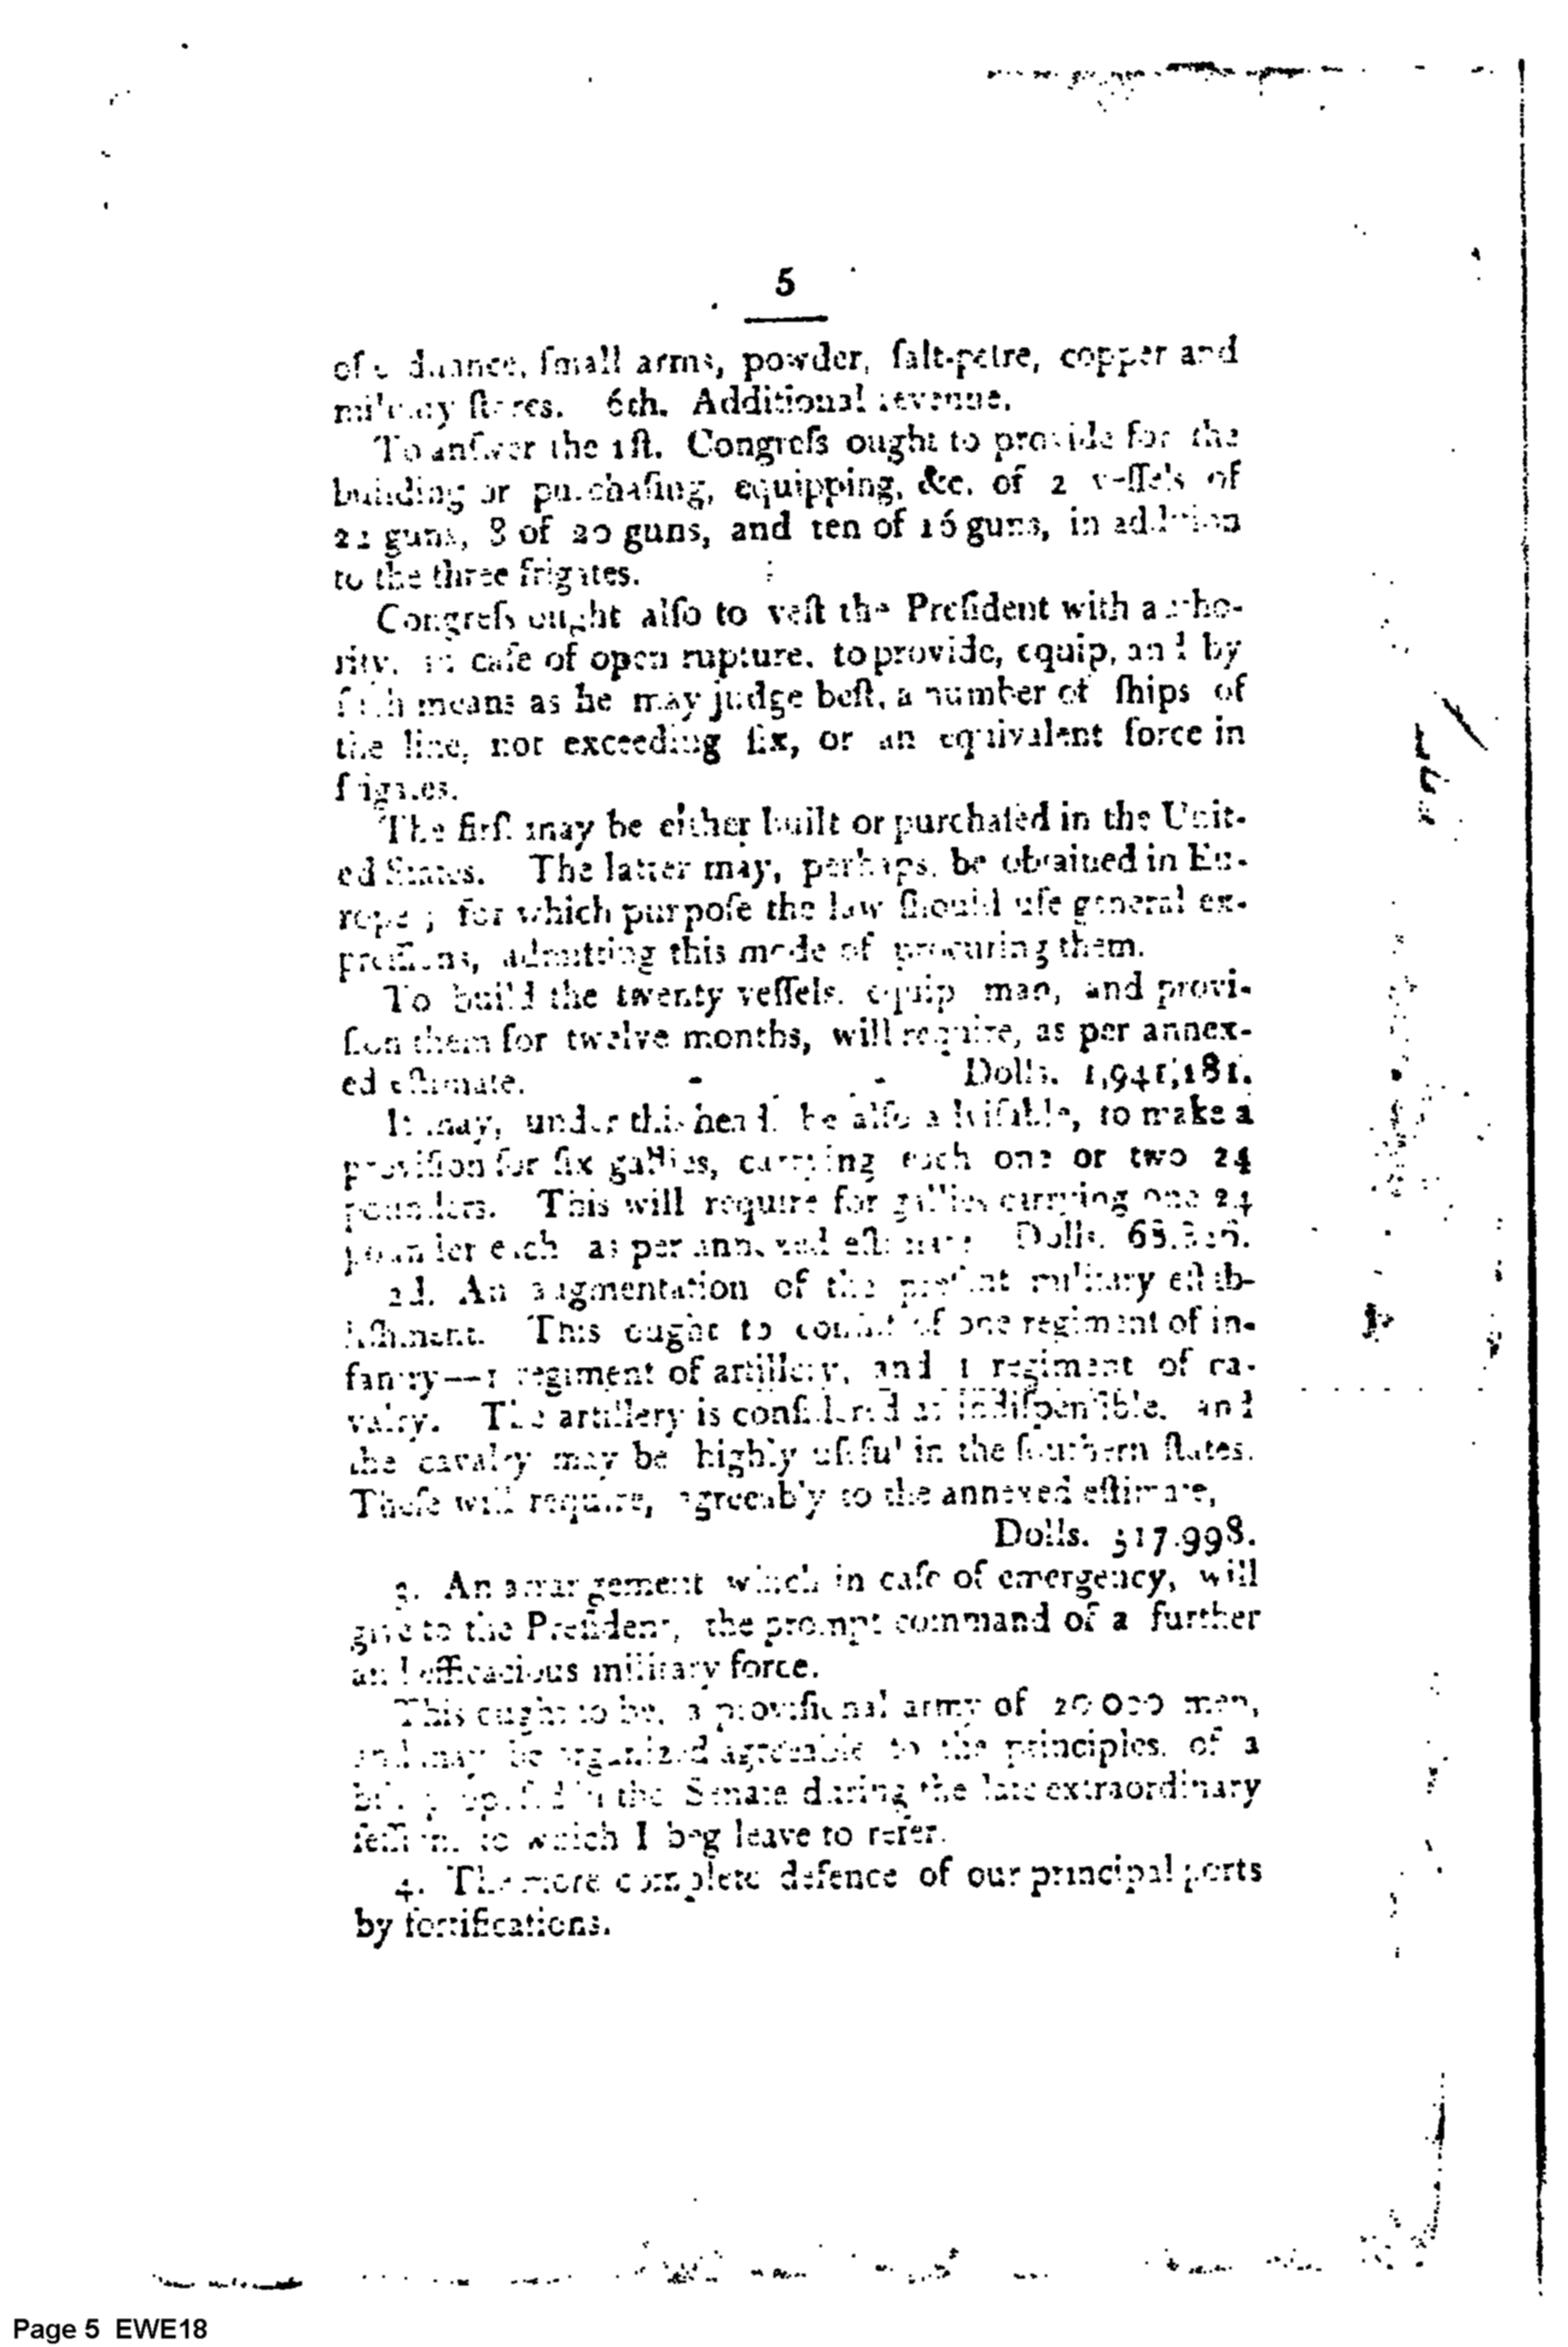 5
of ordnance, ſmall arms, powder, ſalt-petre, copper and
military ſtores. 6th. Additional revenue.
To anſwer the 1ſt. Congreſs ought to provide for the
building or purchaſing, equipping, &c. of 2 veſſels of
22 guns, 8 of 20 guns, and ten of 16 guns, in addition
to the three frigates.
Congreſs ought alſo to veſt the Preſident with autho-
rity, in caſe of open rupture, to provide, equip, and by
ſuch means as he may judge beſt, a number of ſhips of
the line, not exceeding ſix, or an equivalent force in
frigates.
The firſt may be either built or purchaſed in the Unit-
ed States. The latter may, perhaps, be obtained in Eu-
rope ; for which purpoſe the law ſhould uſe general ex-
preſſions, admitting this mode of procuring them.
To build the twenty veſſels, equip man, and provi-
ſion them for twelve months, will require, as per annex-
ed eſtimate. - - Dolls. 1,941,181.
It may, under this head be alſo adviſable, to make a
proviſion for ſix gallies, carrying each one or two 24
pounders. This will require for gallies carrying one 24
pounder each as per annexed eſtimate Dolls.
2d. An augmentation of the preſent military eſtab-
liſhment. This ought to conſiſt of one regiment of in-
fantry—1 regiment of artillery, and 1 regiment of ca-
valry. The artillery is conſidered as indiſpenſible, and
the cavalry may be highly uſeful in the ſouthern ſtates.
Theſe will require, agreeably to the annexed eſtimate,
Dolls. 517.998.
3. An arrangement which in caſe of emergency, will
give to the Preſident, the prompt command of a further
and efficacious military force.
This ought to be, a proviſional army of 20 000 men,
and may be organized agreeable to the principles, of a
bill propoſed in the Senate during the late extraordinary
ſeſſion, to which I beg leave to refer.
4. The more complete defence of our principal ports
by fortifications.
Page 5 EWE18